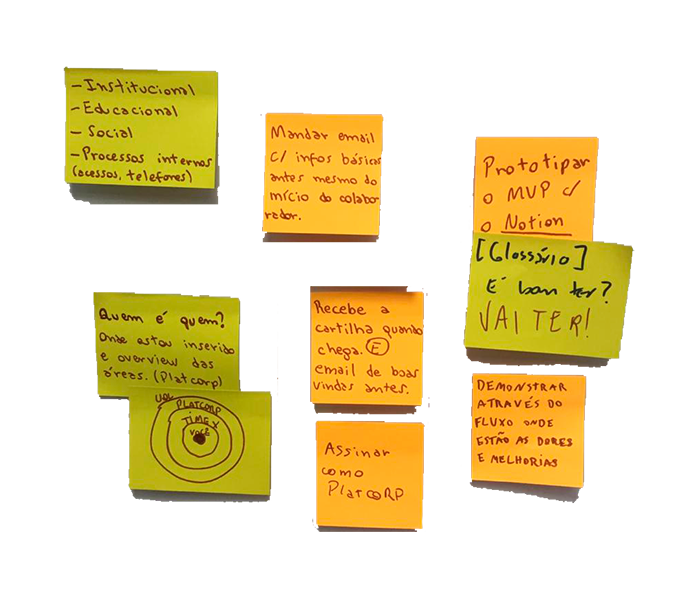 - Institucional
- Educacional
- Social
- Processos internos
(acessos, telefones)
Mandar email
c/ infos básicas
antes mesmo do
início do colabor
rador.
Prototipar
o MVP c/
o Notion
[Glossário]
É bom ter?
VAI TER!
Quem é quem?
Onde estou inserido
e overview das
áreas. (Platcorp)
UOL
PLATCORP
TIME X
VOCÊ
Recebe a
cartilha quando
chega. E
email de boas
vindas antes.
Assinar
como
PlatCORP
DEMONSTRAR
ATRAVÉS DO
FLUXO ONDE
ESTÃO AS DORES
E MELHORIAS